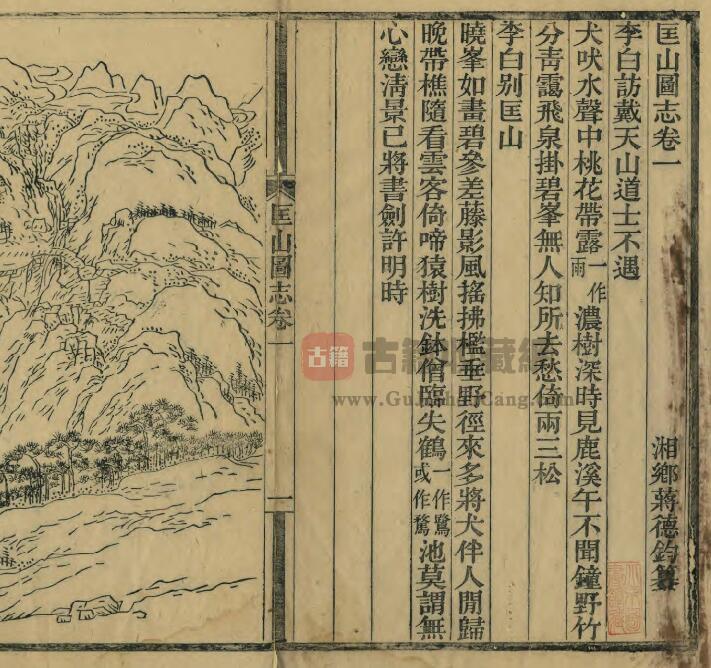 匡山圖志卷一
湘鄉蔣德鈞纂
李白訪戴天山道士不遇
犬吠水聲中桃花帶露一作雨濃樹深時見鹿溪午不聞鐘野竹
分靑靄飛泉掛碧峯無人知所去愁倚兩三松
李白別匡山
曉峯如畫碧參差藤影風搖拂檻垂野徑來多將犬伴人閒歸
晚帶樵隨看雲客倚啼猿樹洗鉢僧臨失鶴一作鷺或作鶩池莫謂無
心戀淸景已將書劍許明時
匡山圖志卷一
一
古籍
www.GuJiShuCang.com